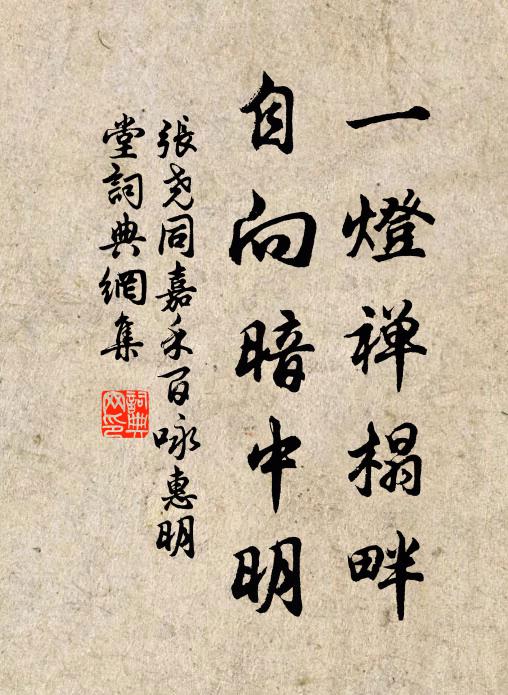 一燈禅榻畔
自向暗中明
張堯同嘉禾百咏惠明
堂詞典網集
詞典
网印